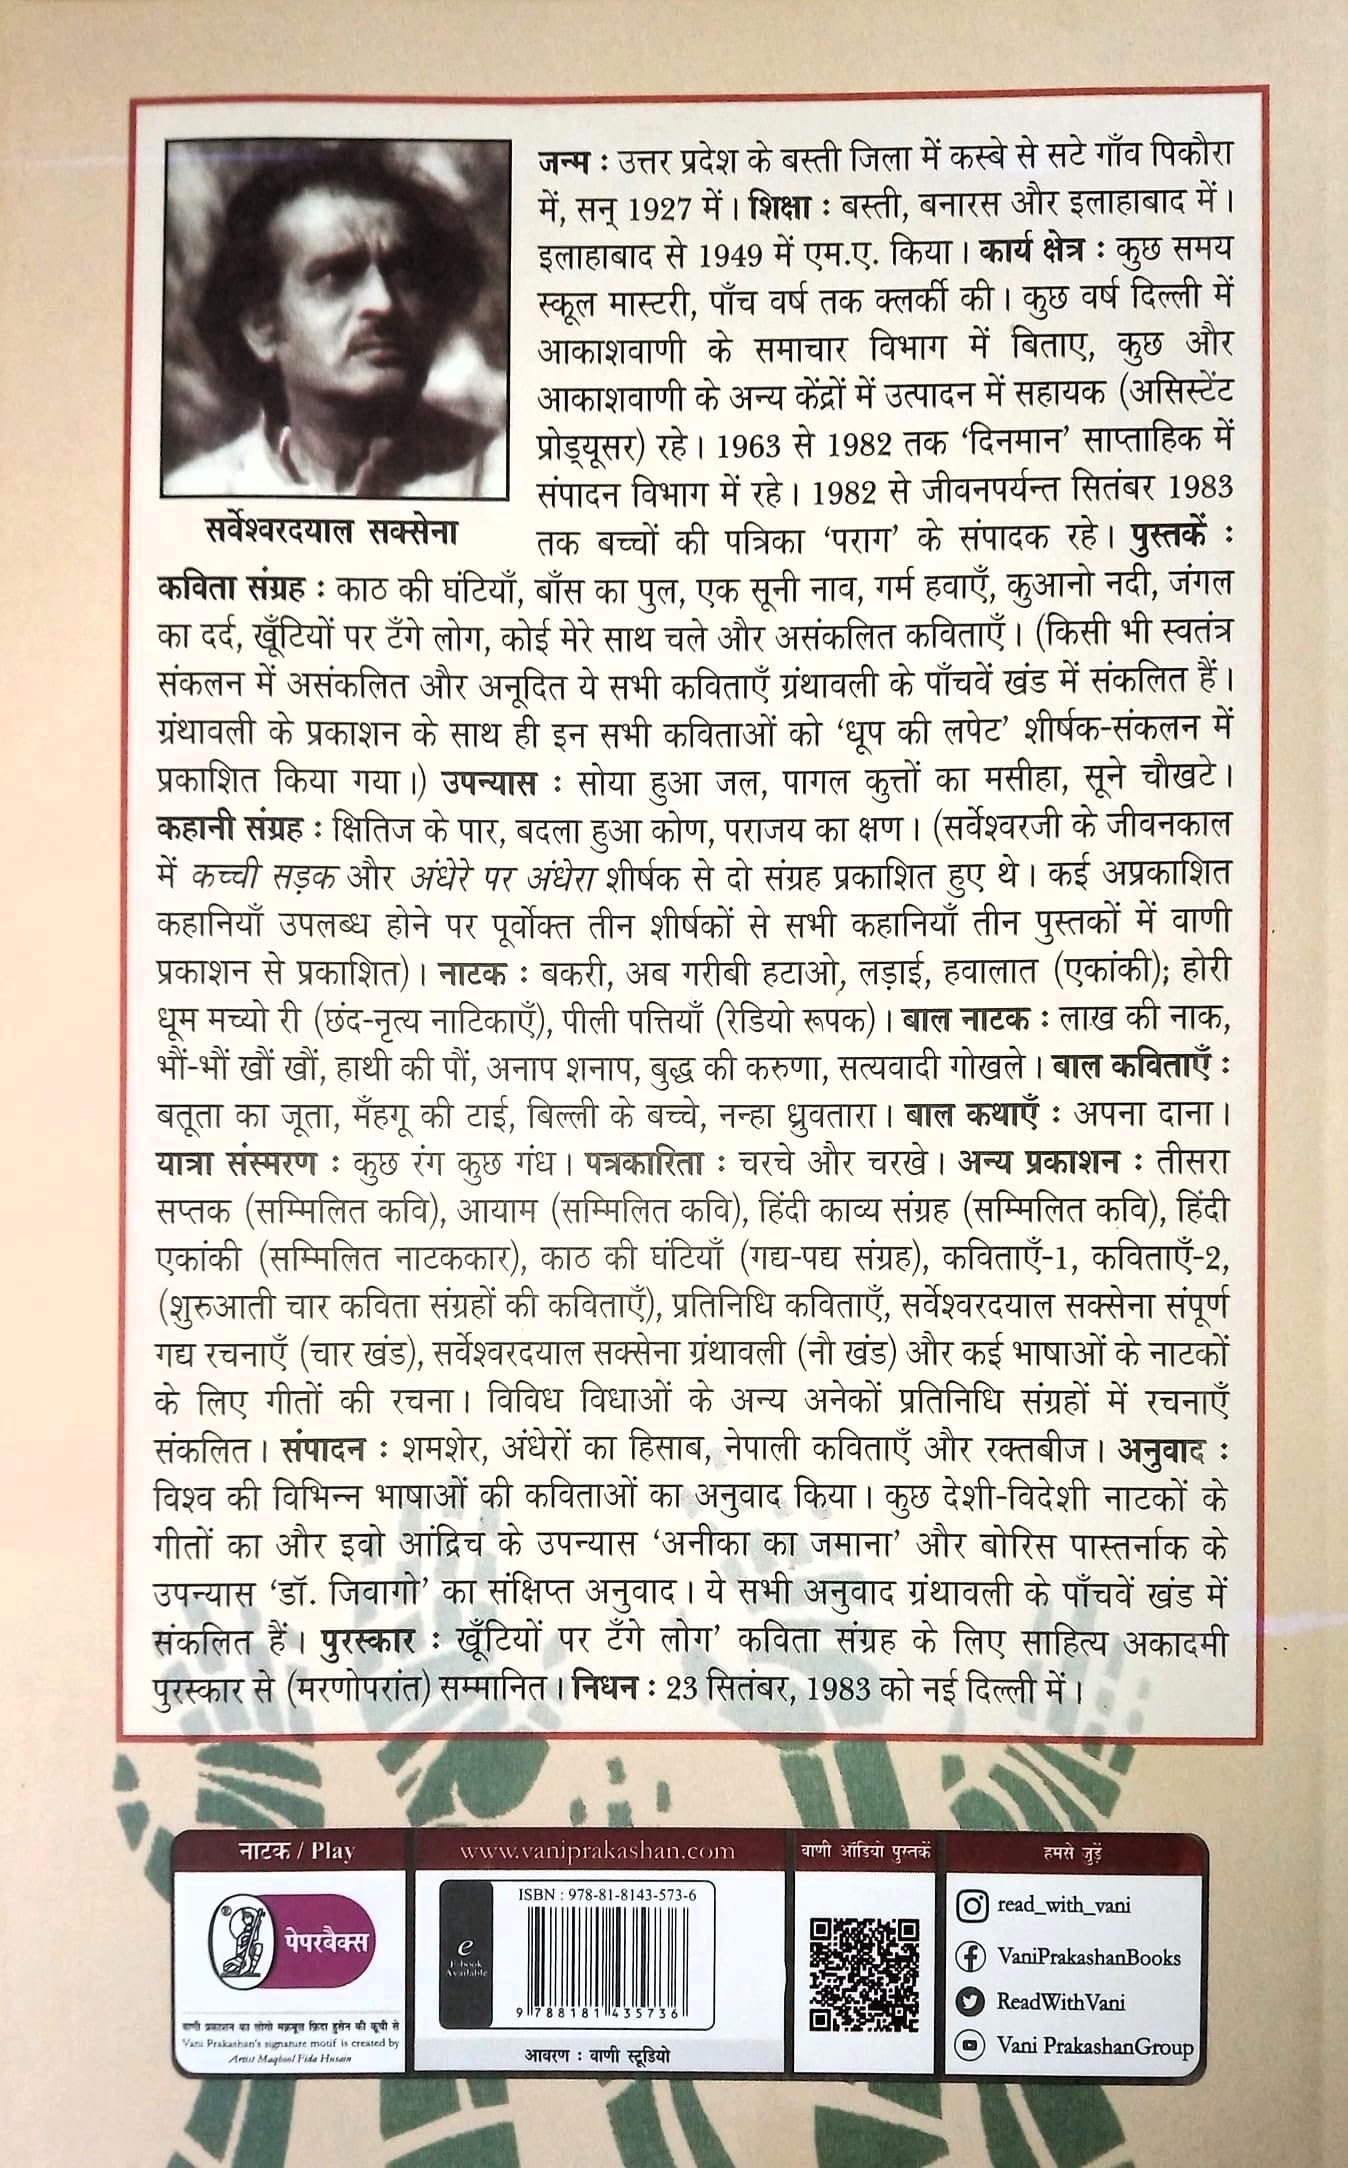 जन्म : उत्तर प्रदेश के बस्ती जिला में कस्बे से सटे गाँव पिकौरा
में, सन् 1927 में। शिक्षा : बस्ती, बनारस और इलाहाबाद में।
इलाहाबाद से 1949 में एम.ए. किया। कार्य क्षेत्र : कुछ समय
स्कूल मास्टरी, पाँच वर्ष तक क्लर्की की। कुछ वर्ष दिल्ली में
आकाशवाणी के समाचार विभाग में बिताए, कुछ और
आकाशवाणी के अन्य केंद्रों में उत्पादन में सहायक (असिस्टेंट
प्रोड्यूसर) रहे। 1963 से 1982 तक ‘दिनमान’ साप्ताहिक में
संपादन विभाग में रहे। 1982 से जीवनपर्यन्त सितंबर 1983
सर्वेश्वरदयाल सक्सेना
तक बच्चों की पत्रिका ‘पराग’ के संपादक रहे। पुस्तकें :
कविता संग्रह : काठ की घंटियाँ, बाँस का पुल, एक सूनी नाव, गर्म हवाएँ, कुआनो नदी, जंगल
का दर्द, खूँटियों पर टँगे लोग, कोई मेरे साथ चले और असंकलित कविताएँ। (किसी भी स्वतंत्र
संकलन में असंकलित और अनूदित ये सभी कविताएँ ग्रंथावली के पाँचवें खंड में संकलित हैं।
ग्रंथावली के प्रकाशन के साथ ही इन सभी कविताओं को ‘धूप की लपेट’ शीर्षक-संकलन में
प्रकाशित किया गया।) उपन्यास : सोया हुआ जल, पागल कुत्तों का मसीहा, सूने चौखटे।
कहानी संग्रह : क्षितिज के पार, बदला हुआ कोण, पराजय का क्षण। (सर्वेश्वरजी के जीवनकाल
में कच्ची सड़क और अंधेरे पर अंधेरा शीर्षक से दो संग्रह प्रकाशित हुए थे। कई अप्रकाशित
कहानियाँ उपलब्ध होने पर पूर्वोक्त तीन शीर्षकों से सभी कहानियाँ तीन पुस्तकों में वाणी
प्रकाशन से प्रकाशित)। नाटक : बकरी, अब गरीबी हटाओ, लड़ाई, हवालात (एकांकी); होरी
धूम मच्यो री (छंद-नृत्य नाटिकाएँ), पीली पत्तियाँ (रेडियो रूपक)। बाल नाटक : लाख की नाक,
भौं-भौं खौं खौं, हाथी की पौं, अनाप शनाप, बुद्ध की करुणा, सत्यवादी गोखले। बाल कविताएँ :
बतूता का जूता, मँहगू की टाई, बिल्ली के बच्चे, नन्हा ध्रुवतारा। बाल कथाएँ : अपना दाना।
यात्रा संस्मरण : कुछ रंग कुछ गंध। पत्रकारिता : चरचे और चरखे। अन्य प्रकाशन : तीसरा
सप्तक (सम्मिलित कवि), आयाम (सम्मिलित कवि), हिंदी काव्य संग्रह (सम्मिलित कवि), हिंदी
एकांकी (सम्मिलित नाटककार), काठ की घंटियाँ (गद्य-पद्य संग्रह), कविताएँ-1, कविताएँ-2,
(शुरुआती चार कविता संग्रहों की कविताएँ), प्रतिनिधि कविताएँ, सर्वेश्वरदयाल सक्सेना संपूर्ण
गद्य रचनाएँ (चार खंड), सर्वेश्वरदयाल सक्सेना ग्रंथावली (नौ खंड) और कई भाषाओं के नाटकों
के लिए गीतों की रचना। विविध विधाओं के अन्य अनेकों प्रतिनिधि संग्रहों में रचनाएँ
संकलित। संपादन : शमशेर, अंधेरों का हिसाब, नेपाली कविताएँ और रक्तबीज। अनुवाद :
विश्व की विभिन्न भाषाओं की कविताओं का अनुवाद किया। कुछ देशी-विदेशी नाटकों के
गीतों का और इवो आंद्रिच के उपन्यास ‘अनीका का जमाना’ और बोरिस पास्तर्नाक के
उपन्यास ‘डॉ. जिवागो’ का संक्षिप्त अनुवाद। ये सभी अनुवाद ग्रंथावली के पाँचवें खंड में
संकलित हैं। पुरस्कार : खूँटियों पर टँगे लोग’ कविता संग्रह के लिए साहित्य अकादमी
पुरस्कार से (मरणोपरांत) सम्मानित। निधन : 23 सितंबर, 1983 को नई दिल्ली में।
नाटक / Play
पेपरबैक्स
वाणी प्रकाशन का लोगो मक़बूल फ़िदा हुसेन की कूची से
Vani Prakashan's signature motif is created by
Artist Maqbool Fida Husain
www.vaniprakashan.com
ISBN : 978-81-8143-573-6
e
E-book
Available
9 788181 435736
आवरण : वाणी स्टूडियो
वाणी ऑडियो पुस्तकें
हमसे जुड़ें
read_with_vani
VaniPrakashanBooks
ReadWithVani
Vani PrakashanGroup